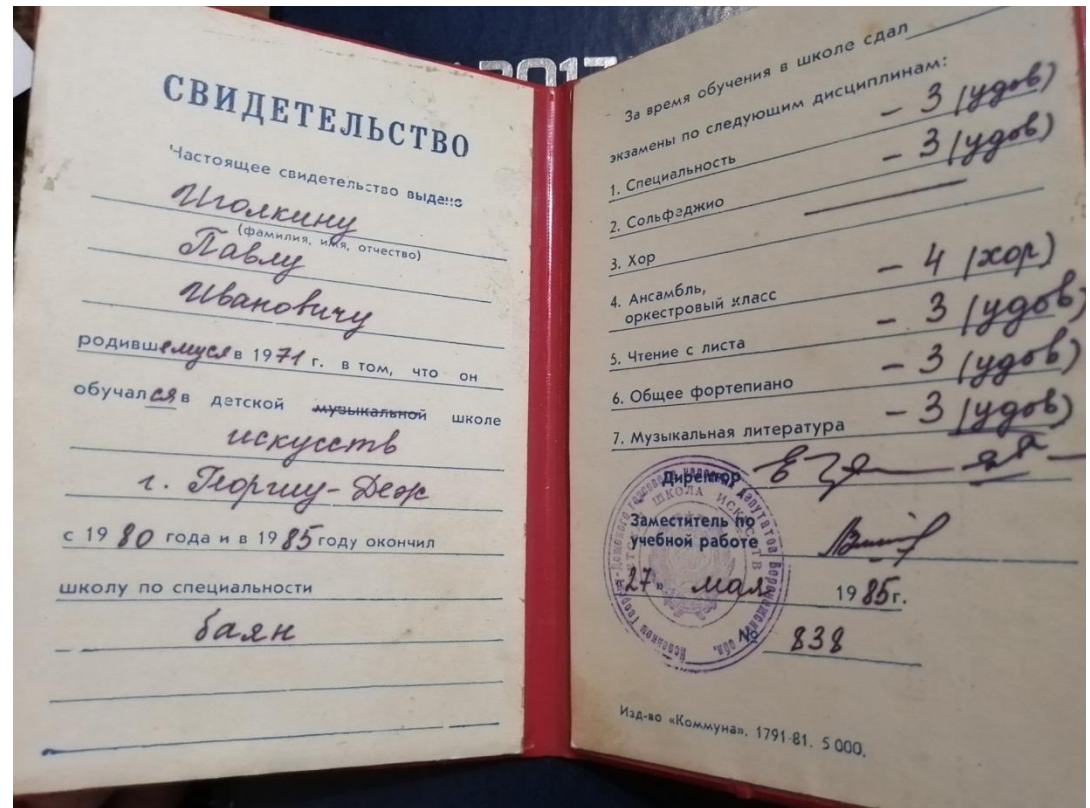 2017
СВИДЕТЕЛЬСТВО
Настоящее свидетельство выдано
Иголкину
(фамилия, имя, отчество)
Павлу
Ивановичу
родившемуся в 1971 г. в том, что он
обучался в детской музыкальной школе
искусств
г. Георгиу-Деж
с 1980 года и в 1985 году окончил
школу по специальности
баян
За время обучения в школе сдал
экзамены по следующим дисциплинам:
1. Специальность – 3 (удов)
2. Сольфеджио – 3 (удов)
3. Хор —
4. Ансамбль,
оркестровый класс – 4 (хор)
5. Чтение с листа – 3 (удов)
6. Общее фортепиано – 3 (удов)
7. Музыкальная литература – 3 (удов)
Директор
Заместитель по
учебной работе
27 " мая 1985 г.
№ 838
ШКОЛА ИСКУССТВ
депутатов Воронежской обл.
Изд-во «Коммуна». 1791-81. 5 000.